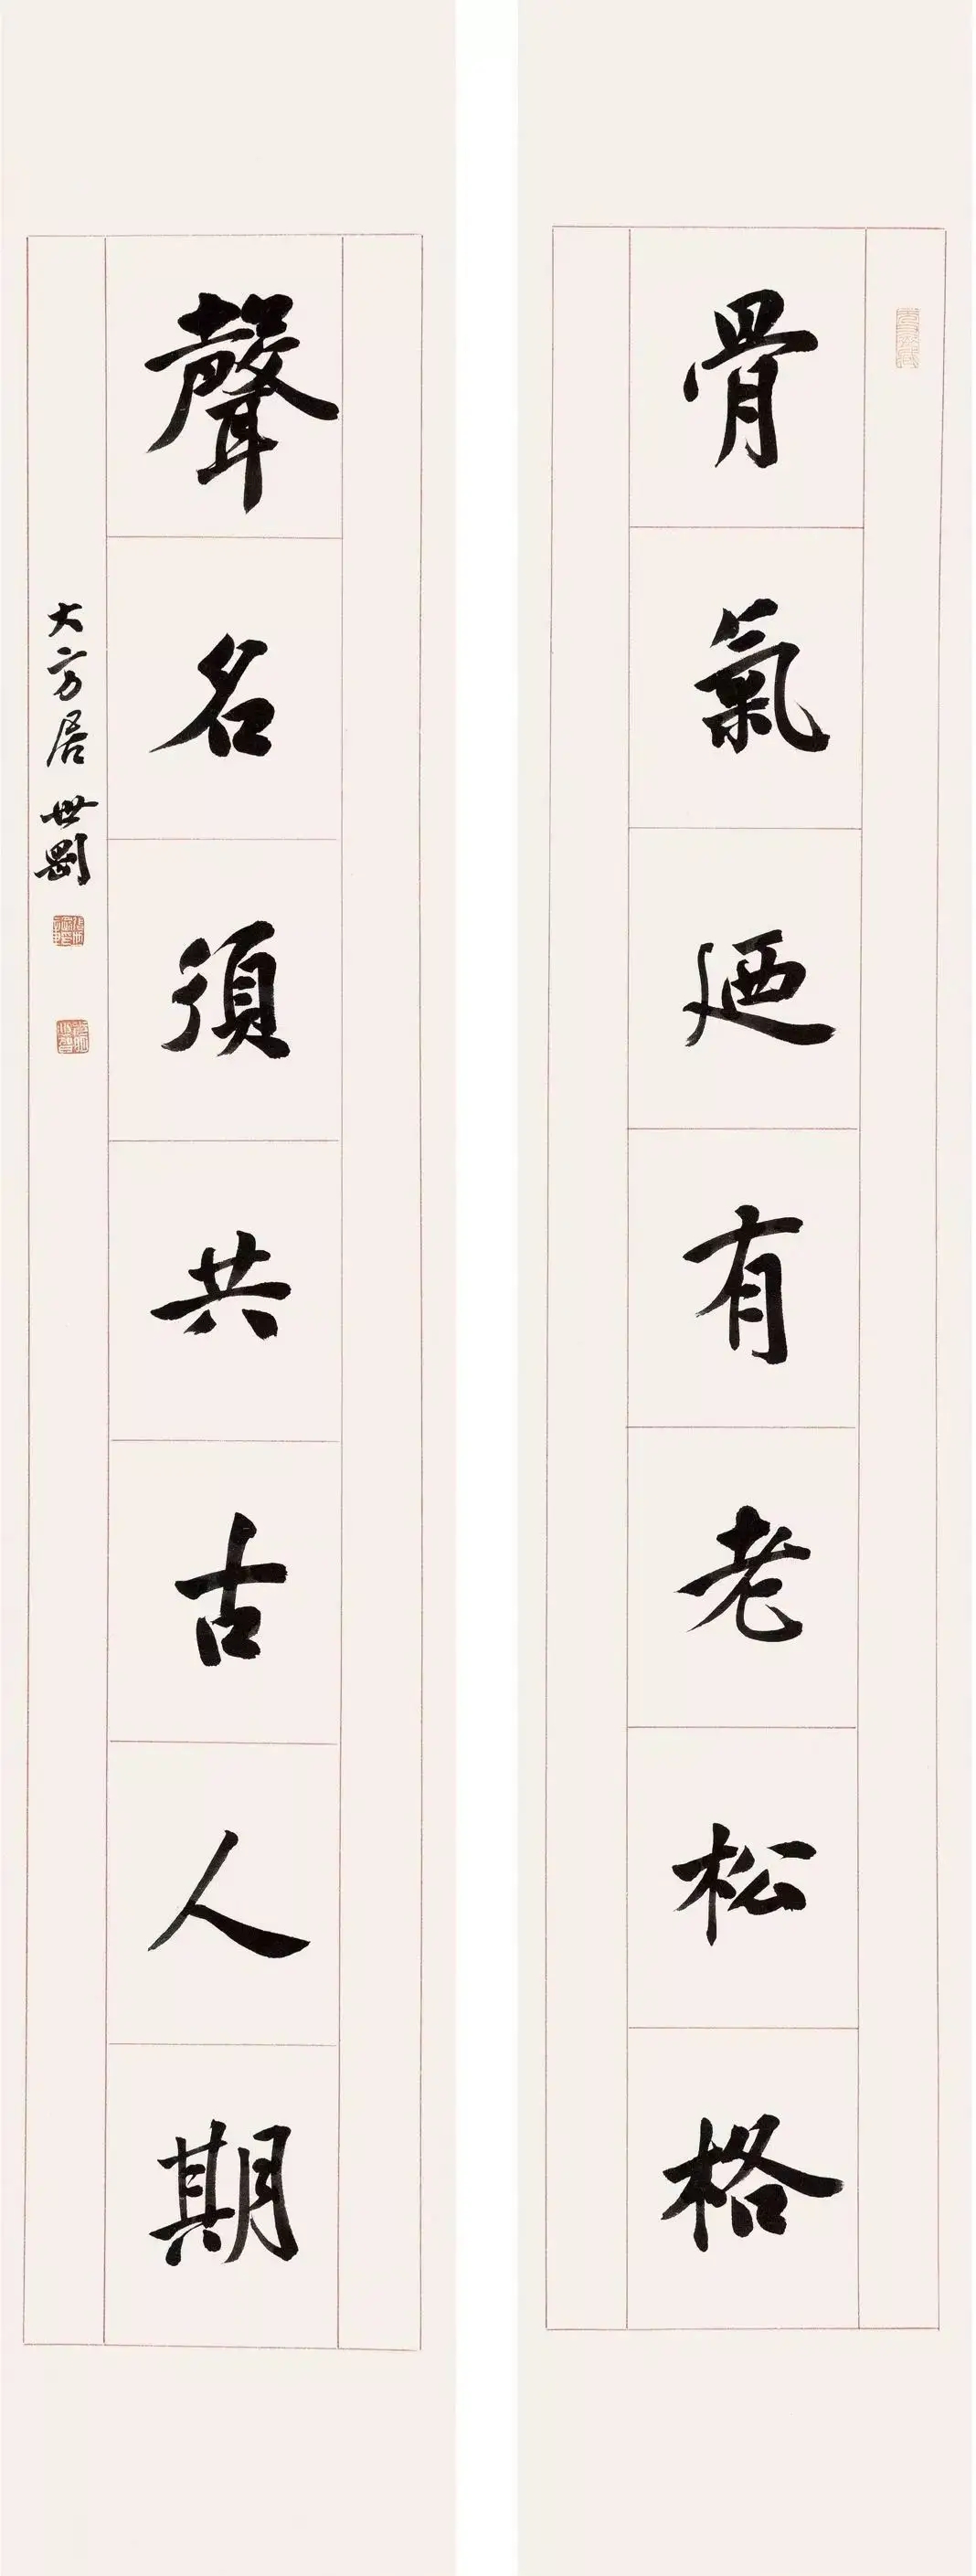 骨氣迺有老松格
聲名須共古人期
大方居世剛